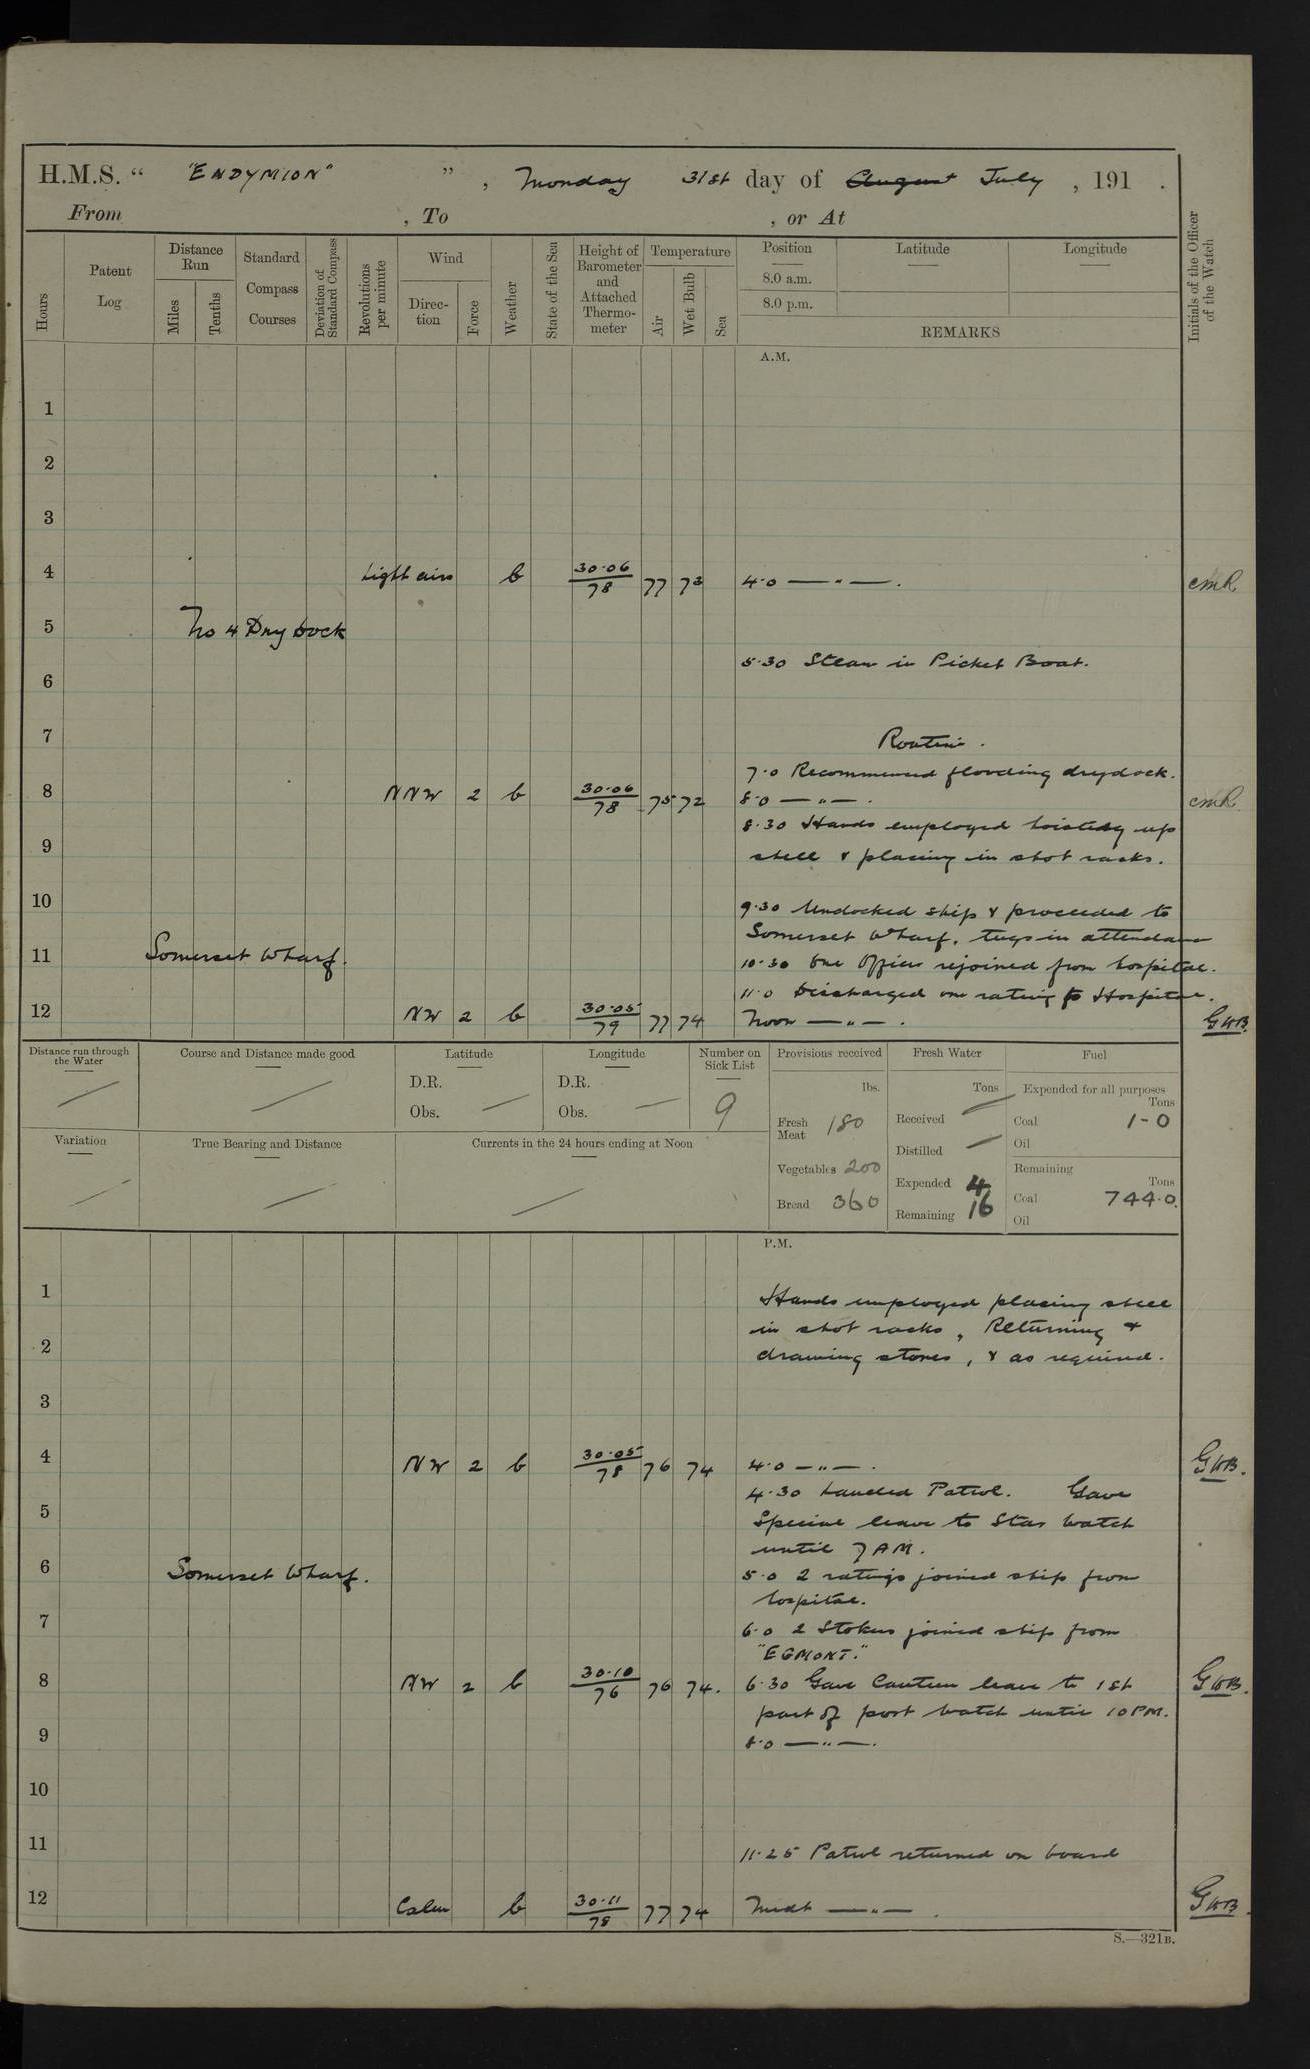 H.M.S. “ "ENDYMION" ” , Monday 31st day of August July , 191 .
From , To , or At
Hours
Patent Log
Distance Run
Miles
Tenths
Standard Compass Courses
Deviation of Standard Compass
Revolutions per minute
Wind
Direc-tion
Force
Weather
State of the Sea
Height of Barometer and Attached Thermo-meter
Temperature
Air
Wet Bulb
Sea
Position
Latitude
Longitude
8.0 a.m.
8.0 p.m.
REMARKS
Initials of the Officer of the Watch
A.M.
1
2
3
4 Light airs b 30.06 78 77 73 4.0 — " — . CMR
5 No 4 Dry Dock
5.30 Steam in Picket Boat.
6
7
Routine.
7.0 Recommenced flooding drydock.
8 NNW 2 b 30.06 78 75 72 8.0 — " — . CMR
8.30 Hands employed hoisting up
9
shell & placing in shot racks.
10
9.30 Undocked ship & proceeded to
Somerset Wharf, tugs in attendance
11 Somerset Wharf. 10.30 One Officer rejoined from hospital.
11.0 Discharged one rating to Hospital.
12 NW 2 b 30.05 79 77 74 Noon — " — . GWB.
Distance run through the Water
Course and Distance made good
Latitude
D.R.
Obs.
Longitude
D.R.
Obs.
Number on Sick List
9
Provisions received
lbs.
Fresh Meat 180
Vegetables 200
Bread 360
Fresh Water
Tons
Received
Distilled
Expended 4
Remaining 16
Fuel
Expended for all purposes
Tons
Coal 1-0
Oil
Remaining
Tons
Coal 744.0
Oil
Variation
True Bearing and Distance
Currents in the 24 hours ending at Noon
P.M.
1
Hands employed placing shell
in shot racks, Returning &
2
drawing stores, & as required.
3
4 NW 2 b 30.05 78 76 74 4.0 — " — . GWB.
4.30 Landed Patrol. Gave
5
Special leave to Star Watch
until 7 AM.
6 Somerset Wharf. 5.0 2 ratings joined ship from
hospital.
7
6.0 2 Stokers joined ship from
"EGMONT."
8 NW 2 b 30.10 76 76 74. 6.30 Gave Canteen leave to 1st GWB.
part of port watch until 10 PM.
9
8.0 — " — .
10
11
11.25 Patrol returned on board
12 Calm b 30.11 78 77 74 Midt — " — . GWB.
S.—321B.